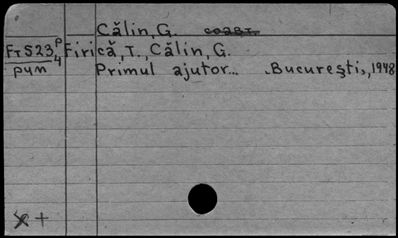 Călin, G.
Ft 523, P4 Firică, T., Călin, G.
рум Primul ajutor... București, 1948